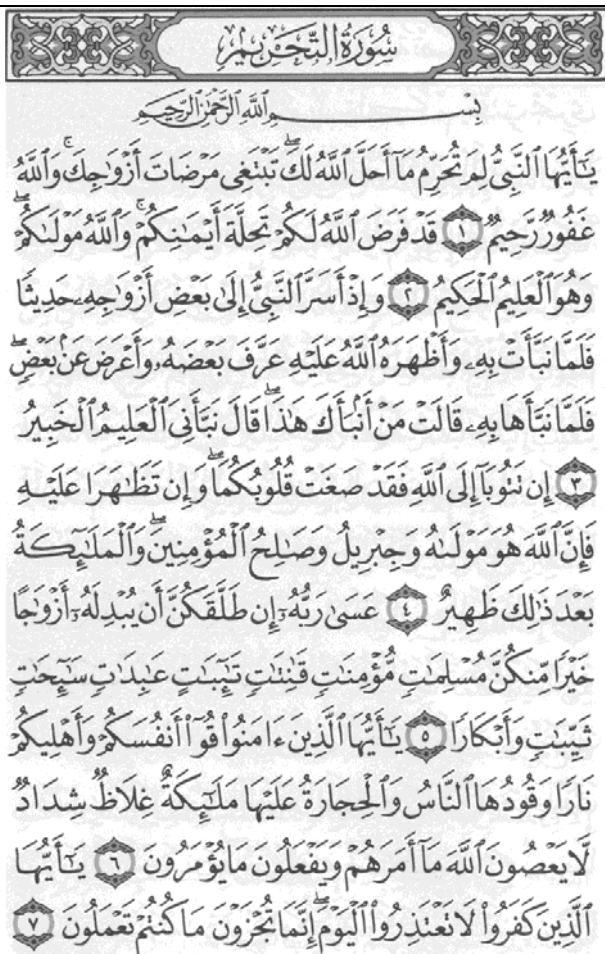 سُورَةُ التَّحْرِيمِ
بِسْمِ ٱللَّهِ ٱلرَّحْمَٰنِ ٱلرَّحِيمِ
يَٰٓأَيُّهَا ٱلنَّبِىُّ لِمَ تُحَرِّمُ مَآ أَحَلَّ ٱللَّهُ لَكَۖ تَبْتَغِى مَرْضَاتَ أَزْوَٰجِكَۚ وَٱللَّهُ
غَفُورٌ رَّحِيمٌ ١ قَدْ فَرَضَ ٱللَّهُ لَكُمْ تَحِلَّةَ أَيْمَٰنِكُمْۚ وَٱللَّهُ مَوْلَىٰكُمْۖ
وَهُوَ ٱلْعَلِيمُ ٱلْحَكِيمُ ٢ وَإِذْ أَسَرَّ ٱلنَّبِىُّ إِلَىٰ بَعْضِ أَزْوَٰجِهِۦ حَدِيثًا
فَلَمَّا نَبَّأَتْ بِهِۦ وَأَظْهَرَهُ ٱللَّهُ عَلَيْهِ عَرَّفَ بَعْضَهُۥ وَأَعْرَضَ عَنۢ بَعْضٍۖ
فَلَمَّا نَبَّأَهَا بِهِۦ قَالَتْ مَنْ أَنۢبَأَكَ هَٰذَاۖ قَالَ نَبَّأَنِىَ ٱلْعَلِيمُ ٱلْخَبِيرُ
٣ إِن تَتُوبَآ إِلَى ٱللَّهِ فَقَدْ صَغَتْ قُلُوبُكُمَاۖ وَإِن تَظَٰهَرَا عَلَيْهِ
فَإِنَّ ٱللَّهَ هُوَ مَوْلَىٰهُ وَجِبْرِيلُ وَصَٰلِحُ ٱلْمُؤْمِنِينَۖ وَٱلْمَلَٰٓئِكَةُ
بَعْدَ ذَٰلِكَ ظَهِيرٌ ٤ عَسَىٰ رَبُّهُۥٓ إِن طَلَّقَكُنَّ أَن يُبْدِلَهُۥٓ أَزْوَٰجًا
خَيْرًا مِّنكُنَّ مُسْلِمَٰتٍ مُّؤْمِنَٰتٍ قَٰنِتَٰتٍ تَٰٓئِبَٰتٍ عَٰبِدَٰتٍ سَٰٓئِحَٰتٍ
ثَيِّبَٰتٍ وَأَبْكَارًا ٥ يَٰٓأَيُّهَا ٱلَّذِينَ ءَامَنُوا۟ قُوٓا۟ أَنفُسَكُمْ وَأَهْلِيكُمْ
نَارًا وَقُودُهَا ٱلنَّاسُ وَٱلْحِجَارَةُ عَلَيْهَا مَلَٰٓئِكَةٌ غِلَاظٌ شِدَادٌ
لَّا يَعْصُونَ ٱللَّهَ مَآ أَمَرَهُمْ وَيَفْعَلُونَ مَا يُؤْمَرُونَ ٦ يَٰٓأَيُّهَا
ٱلَّذِينَ كَفَرُوا۟ لَا تَعْتَذِرُوا۟ ٱلْيَوْمَۖ إِنَّمَا تُجْزَوْنَ مَا كُنتُمْ تَعْمَلُونَ ٧